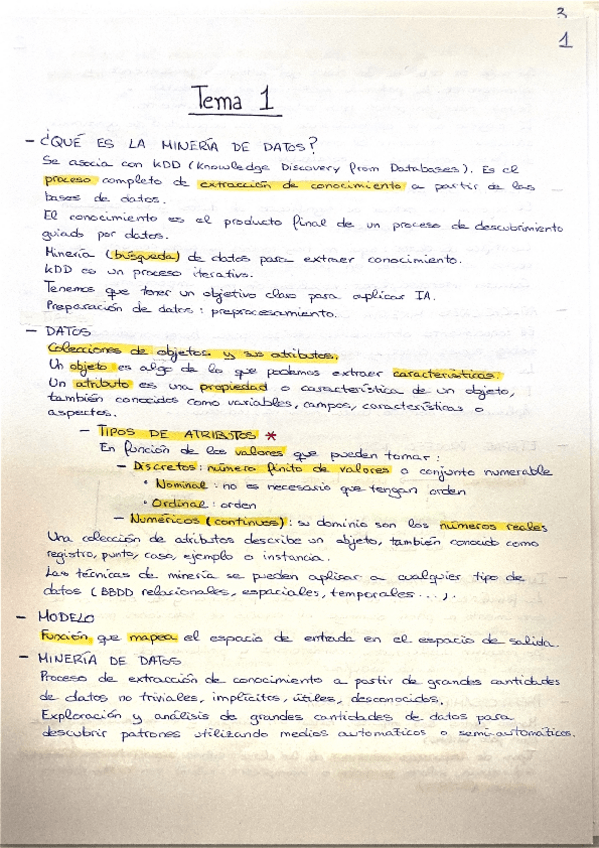 3
1
Tema 1
- ¿QUÉ ES LA MINERÍA DE DATOS?
Se asocia con KDD (Knowledge Discovery from Databases). Es el
proceso completo de extracción de conocimiento a partir de las
bases de datos.
El conocimiento es el producto final de un proceso de descubrimiento
guiado por datos.
Minería (búsqueda) de datos para extraer conocimiento.
KDD es un proceso iterativo.
Tenemos que tener un objetivo claro para aplicar IA.
Preparación de datos: preprocesamiento.
- DATOS
Colecciones de objetos y sus atributos.
Un objeto es algo de lo que podemos extraer características.
Un atributo es una propiedad o característica de un objeto,
también conocidos como variables, campos, características o
aspectos.
- TIPOS DE ATRIBUTOS *
En función de los valores que pueden tomar:
- Discretos: número finito de valores o conjunto numerable
· Nominal: no es necesario que tengan orden
· Ordinal: orden
- Numéricos (continuos): su dominio son los números reales
Una colección de atributos describe un objeto, también conocido como
registro, punto, caso, ejemplo o instancia.
Las técnicas de minería se pueden aplicar a cualquier tipo de
datos (BBDD relacionales, espaciales, temporales...).
- MODELO
Función que mapea el espacio de entrada en el espacio de salida.
- MINERÍA DE DATOS
Proceso de extracción de conocimiento a partir de grandes cantidades
de datos no triviales, implícitos, útiles, desconocidos.
Exploración y análisis de grandes cantidades de datos para
descubrir patrones utilizando medios automáticos o semi-automáticos.